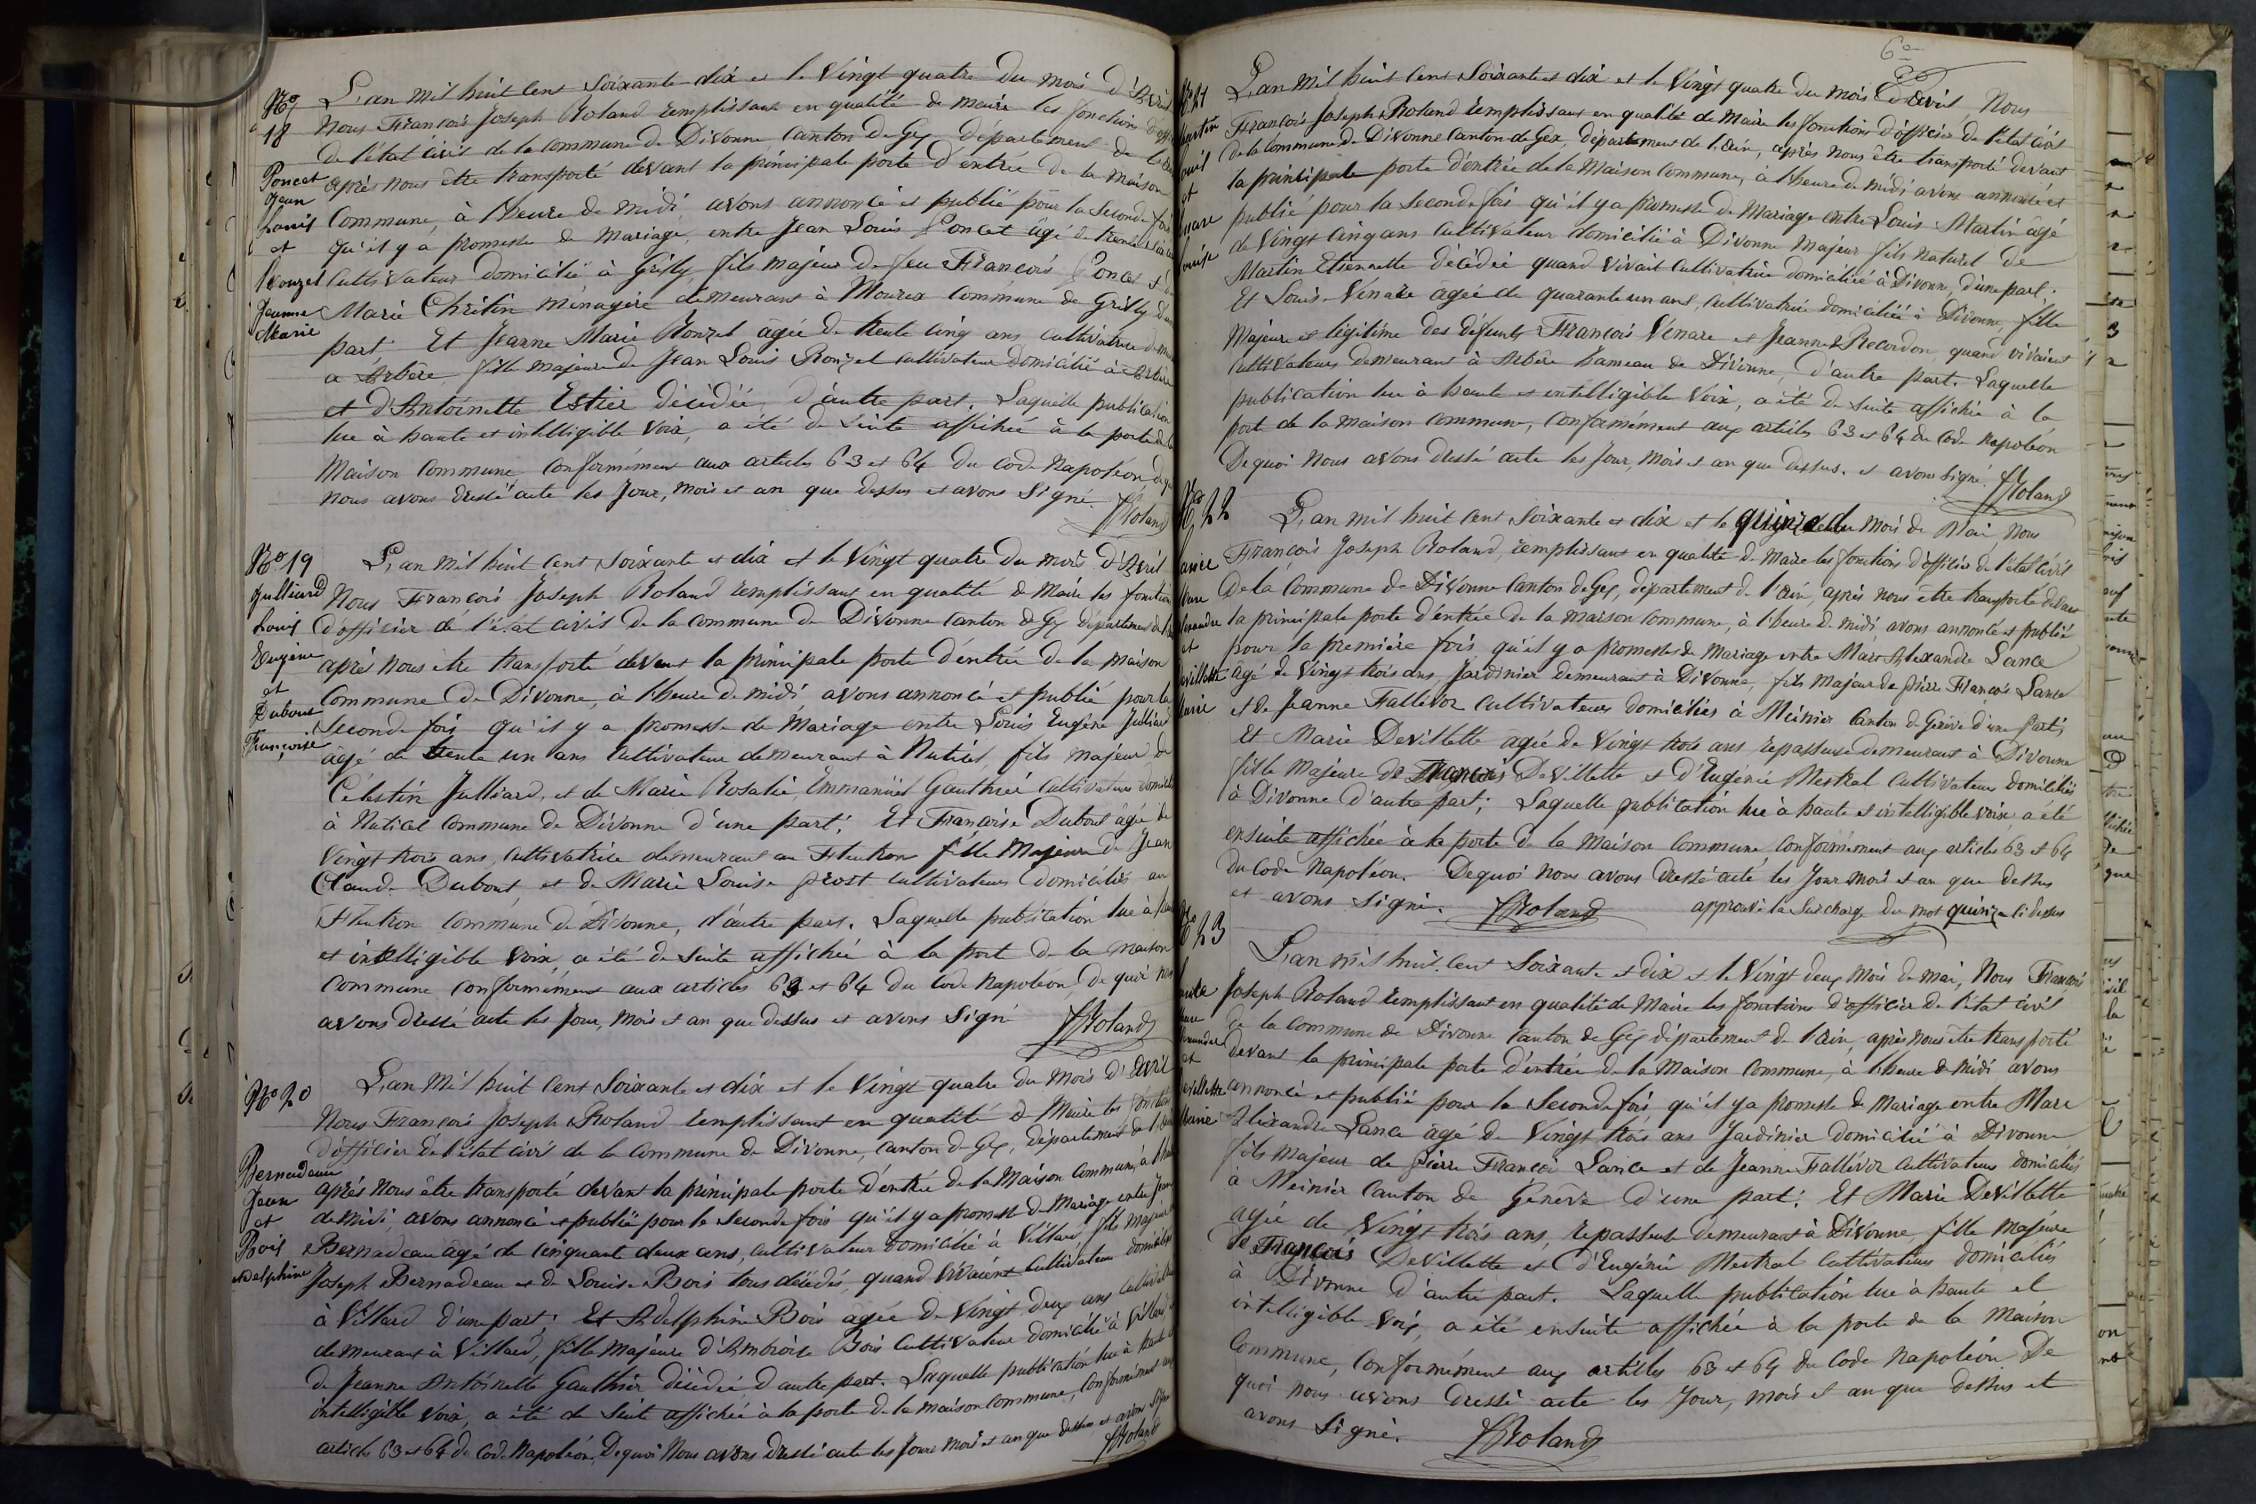 No
18
Poncet
Jean
Louis
et
Rouzet
Jeanne
Marie
L'an mil huit cent soixante dix et le vingt quatre du mois d'Avril
Nous François Joseph Roland remplissant en qualité de maire les fonctions
de l'état civil de la commune de Divonne, canton de Gex département de
après nous être transporté devant la principale porte d'entrée de la maison
Commune, à l'heure de midi, avons annoncé et publié pour la seconde fois
qu'il y a promesse de Mariage, entre Jean Louis Poncet âgé de trente
cultivateur domicilié à Grilly, fils majeur de feu François Poncet et
Marie Chrétin ménagère demeurant à Mourex commune de Grilly
part Et Jeanne Marie Rouzet âgée de trente cinq ans, cultivatrice
à Arbère, fille majeure de Jean Louis Rouzet cultivateur domicilié à Arbère
et d'Antoinette Estier décédée, d'autre part. Laquelle publication
lue à haute et intelligible voix, a été de suite affichée à la porte de la
Maison Commune conformément aux articles 63 et 64 du code Napoléon,
nous avons dressé acte les Jour, mois et an que dessus et avons signé.
FRoland
No 19
Julliard
Louis
Eugène
et
Dubout
Françoise
L'an mil huit cent soixante et dix et le vingt quatre du mois d'Avril
Nous François Joseph Roland remplissant en qualité de Maire les fonctions
d'officier de l'état civil de la commune de Divonne canton de Gex département de
après nous être transporté devant la principale porte d'entrée de la maison
commune de Divonne, à l'heure de midi, avons annoncé et publié pour la
seconde fois qu'il y a promesse de Mariage entre Louis Eugène Julliard
âgé de trente un ans cultivateur demeurant à Naticel, fils majeur de
Célestin Julliard, et de Marie Rosalie, Emmanüel Gauthier cultivateurs
à Naticel commune de Divonne d'une part; Et Françoise Dubout âgé de
vingt trois ans, cultivatrice demeurant au Flutron fille Majeure de Jean
Claude Dubout, et de Marie Louise prost cultivateurs domiciliés au
Flutron commune de Divonne, d'autre part. Laquelle publication lue à
et intelligible voix, a été de suite affichée à la porte de la maison
commune conformément aux articles 63 et 64 du code Napoléon, De quoi
avons dressé acte les Jour, mois et an que dessus et avons signé
FRoland
No 20
Bernadeau
Jean
et
Bois
Adelphine
L'an mil huit cent soixante et dix et le vingt quatre du mois d'Avril
Nous François Joseph Roland remplissant en qualité de Maire les fonctions
d'officier de l'état civil de la commune de Divonne, canton de Gex, département de
après nous être transporté devant la principale porte d'entrée de la Maison commune, à
de midi, avons annoncé et publié pour la seconde fois qu'il y a promesse de Mariage entre Jean
Bernadeau âgé de cinquante deux ans, cultivateur domicilié à Villard, fils majeur
Joseph Bernadeau et de Louise Bois tous décédés, quand vivaient cultivateurs
à Villard d'une part; Et Adelphine Bois âgée de vingt deux ans
demeurant à Villard, fille majeure d'Ambroise Bois cultivateur domicilié à Villard
de Jeanne Antoinette Gauthier décédée d'autre part. Laquelle publication lue à haute
intelligible voix, a été de suite affichée à la porte de la maison commune, Conformément aux
articles 63 et 64 du Code Napoléon, De quoi Nous avons dressé acte les Jours Mois et an que dessus et avons signé
FRoland
60
L'an mil huit cent soixante et dix et le vingt quatre du mois d'avril, Nous
François Joseph Roland remplissant en qualité de Maire les fonctions d'officier de l'état civil
de la commune de Divonne canton de Gex, département de l'Ain, après nous être transporté devant
la principale porte d'entrée de la Maison commune, à l'heure de midi avons annoncé et
publié pour la seconde fois qu'il y a promesse de Mariage entre Louis Martin âgé
de vingt cinq ans cultivateur domicilié à Divonne majeur fils naturel de
Martin Etiennette décédée quand vivait cultivatrice domiciliée à Divonne, d'une part.
Et Louise Venare âgée de quarante un ans, cultivatrice domiciliée à Divonne, fille
Majeure et légitime des défunts François Vénare et Jeanne Recordon quand vivaient
cultivateurs demeurant à Arbère hameau de Divonne, d'autre part. Laquelle
publication lue à haute et intelligible voix, a été de suite affichée à la
porte de la maison commune, conformément aux articles 63 et 64 du Code Napoléon
De quoi nous avons dressé acte les Jour, mois et an que dessus. et avons signé.
FRoland
No 22
L'an mil huit cent soixante et dix et le quinze du mois de Mai, Nous
François Joseph Roland, remplissant en qualité de maire les fonctions d'officier de l'état civil
De la commune de Divonne canton de Gex, département de l'ain, après nous être transporté devant
la principale porte d'entrée de la maison commune, à l'heure de midi, avons annoncé et publié
pour la première fois qu'il y a promesse de mariage entre Marc Alexandre Lance
âgé de vingt trois ans, Jardinier demeurant à Divonne, fils majeur de pierre François Lance
et de Jeanne Fallévoz cultivateurs domiciliés à Meinier canton de Genève d'une part;
Et Marie Devillette âgée de vingt trois ans repasseuse demeurant à Divonne
fille majeure de François Devillette et d'Eugénie Mestral cultivateurs domiciliés
à Divonne d'autre part; Laquelle publication lue à haute et intelligible voix, a été
ensuite affichée à la porte de la Maison commune, conformément aux articles 63 et 64
du Code Napoléon. De quoi nous avons dressé acte les Jour mois et an que dessus
et avons signé. FRoland approuvé la surcharge du mot quinze ci dessus
23
L'an mil huit cent soixante et dix et le vingt deux Mois de mai, Nous François
Joseph Roland remplissant en qualité de Maire les fonctions d'officier de l'état civil
de la commune de Divonne canton de Gex département de l'ain, après nous être transporté
devant la principale porte d'entrée de la Maison commune, à l'heure de midi avons
annoncé et publié pour la seconde fois, qu'il y a promesse de Mariage entre Marc
Alexandre Lance âgé de vingt trois ans Jardinier domicilié à Divonne
fils majeur de pierre François Lance et de Jeanne Fallévoz cultivateurs domiciliés
à Meinier canton de Genève d'une part; Et Marie Devillette
âgée de vingt trois ans, repasseuse demeurant à Divonne, fille majeure
de François Devillette et d'Eugénie Mestral cultivateurs domiciliés
à Divonne d'autre part. Laquelle publication lue à haute et
intelligible voix, a été ensuite affichée à la porte de la Maison
Commune, conformément aux articles 63 et 64 du Code Napoléon De
quoi nous avons dressé acte les Jour, mois et an que dessus et
avons signé. FRoland